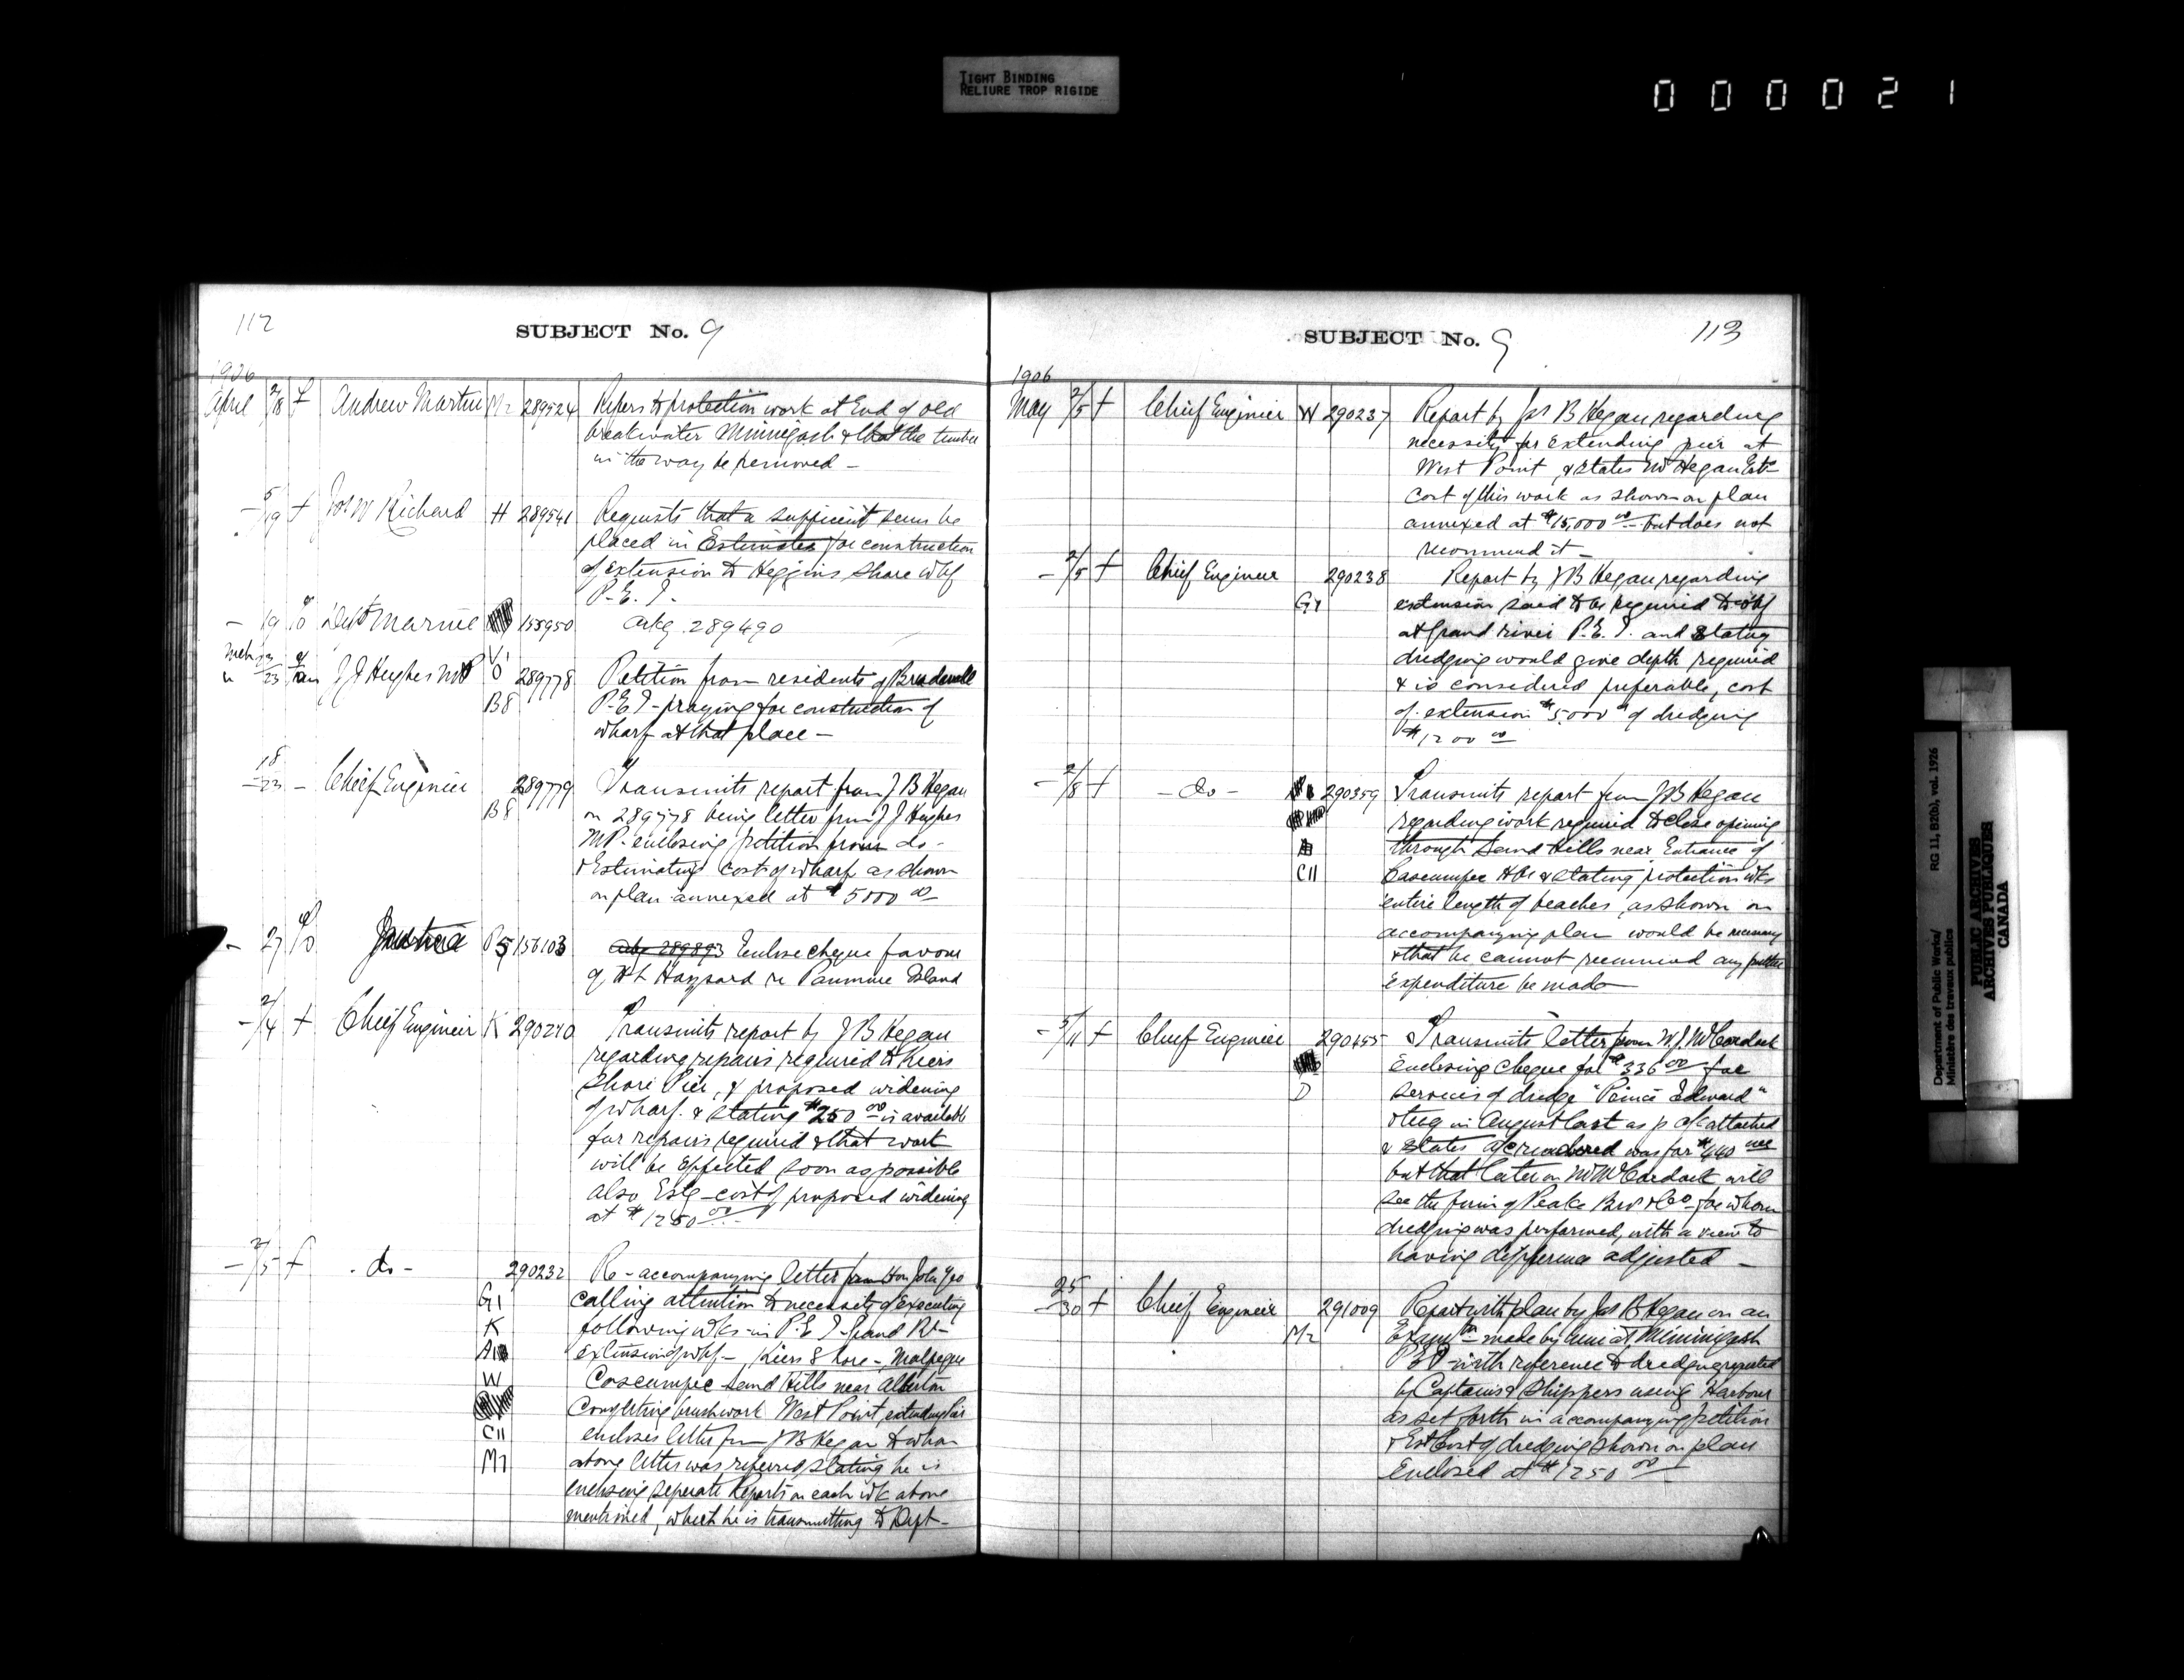 TIGHT BINDING
RELIURE TROP RIGIDE
000021
112
SUBJECT No. 9
1906
April 2/18 f Andrew Martin M2 289524 Refers to protection work at End of old
breakwater Minnigash & that the timber
in the way be removed –
– 5/19 f Jos W Richard H 289541 Requests that a sufficient sum be
placed in Estimates for construction
of extension to Higgins Shore whf
P.E.I.
– 19 Dept Marine 155950 Ackg 289490
23 J J Hughes MP O 289778 Petition from residents of Brudenell
B8 P.E.I – praying for construction of
wharf at that place –
18
– 23 – Chief Engineer 289779 Transmits report from J B Hegan
B8 on 289778 being letter from J J Hughes
MP. enclosing petition from do –
& Estimating cost of wharf as shown
on plan annexed at $5000 00
– 27 Justice P5 156103 Ackg 289893 Enclose cheque favour
of H L Hazzard re Panmure Island
– 2/4 f Chief Engineer K 290240 Transmits report by J B Hegan
regarding repairs required to Kiers
Shore Pier, & proposed widening
of wharf. & stating $250 00 is available
for repairs required & that work
will be effected soon as possible
also Estg – cost of proposed widening
at $1250 00
– 2/5 f – do – 290232 Re – accompanying letter from Hon John Yeo
G1 calling attention to necessity of Executing
K following wks – in P.E.I – Grand Rv –
A extension of whf –, Kiers Shore –, Malpeque
W Cascumpec Sand Hills near Alberton
Completing brushwork West Point, extending Pier
C11 encloses letter from J B Hegan to whom
M7 above letter was referred stating he is
enclosing seperate Reports on each wk above
mentioned, which he is transmitting to Dept –
SUBJECT No. 9
113
1906
May 2/5 f Chief Engineer W 290237 Report by Jas B Hegan regarding
necessity for Extending pier at
West Point, & states Mr Hegan Ests
cost of this work as shown on plan
annexed at $15,000 00 – but does not
recommend it –
– 2/5 f Chief Engineer 290238 Report by J B Hegan regarding
G1 extension said to be required to whf
at Grand river P.E.I. and stating
dredging would give depth required
& is considered preferable, cost
of extension $5,000 & of dredging
$1200 00
– 2/8 f – do – 290359 Transmits report from J B Hegan
regarding work required to close opening
through Sand Hills near Entrance of
C11 Cascumpec Hbr & stating protection wks
entire length of beaches, as shown on
accompanying plan would be necessary
& that he cannot recommend any further
expenditure be made
– 5/11 f Chief Engineer 290455 Transmits letter from W. J. McCordock
enclosing cheque for $336 00 for
D services of dredge "Prince Edward"
& tug in August last as p a/c attached
& states a/c rendered was for $440
but that later on Mr McCordock will
see the firm of Peake Bros & Co – for whom
dredging was performed, with a view to
having difference adjusted –
25
– 30 f Chief Engineer 291009 Report with plan by Jas B Hegan on an
M2 Examtn – made by him at Miminigash
P.E.I – with reference to dredging requested
by Captains & Shippers using Harbour
as set forth in accompanying petition
& Est Cost of dredging shown on plan
Enclosed at $1250 00
Department of Public Works/
Ministère des travaux publics
RG 11, B2(b), vol. 1926
PUBLIC ARCHIVES
ARCHIVES PUBLIQUES
CANADA